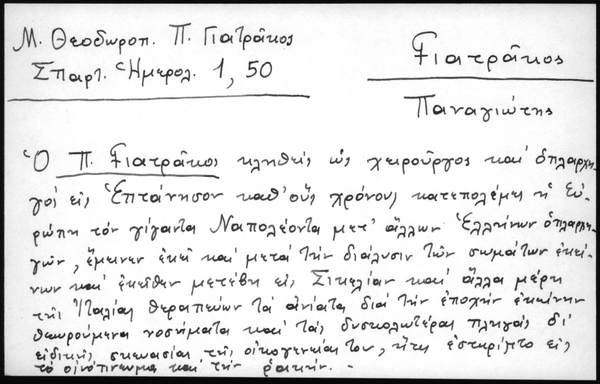 Μ. Θεοδωροπ. Π. Γιατρᾶκος
Σπαρτ. Ἡμερολ. 1, 50
Γιατρᾶκος
Παναγιώτης
Ὁ Π. Γιατρᾶκος κληθείς ὡς χειροῦργος καί ὁπλαρχη-
γός εἰς Ἑπτάνησον καθ' οὓς χρόνους κατεπολέμει ἡ Εὐ-
ρώπη τόν γίγαντα Ναπολέοντα μετ' ἄλλων Ἑλλήνων ὁπλαρχη-
γῶν, ἔμεινεν ἐκεῖ καί μετά τήν διάλυσιν τῶν σωμάτων ἐκεί-
νων καί ἐκεῖθεν μετέβη εἰς Σικελίαν καί ἄλλα μέρη
τῆς Ἰταλίας θεραπεύων τά ἀνίατα διά τήν ἐποχήν ἐκείνην
θεωρούμενα νοσήματα καί τάς δυσκολωτέρας πληγάς δι'
εἰδικῆς σκευασίας τῆς οἰκογενείας του, ἥτις ἐστηρίζετο εἰς
τό οἰνόπνευμα καί τήν ρακήν. -